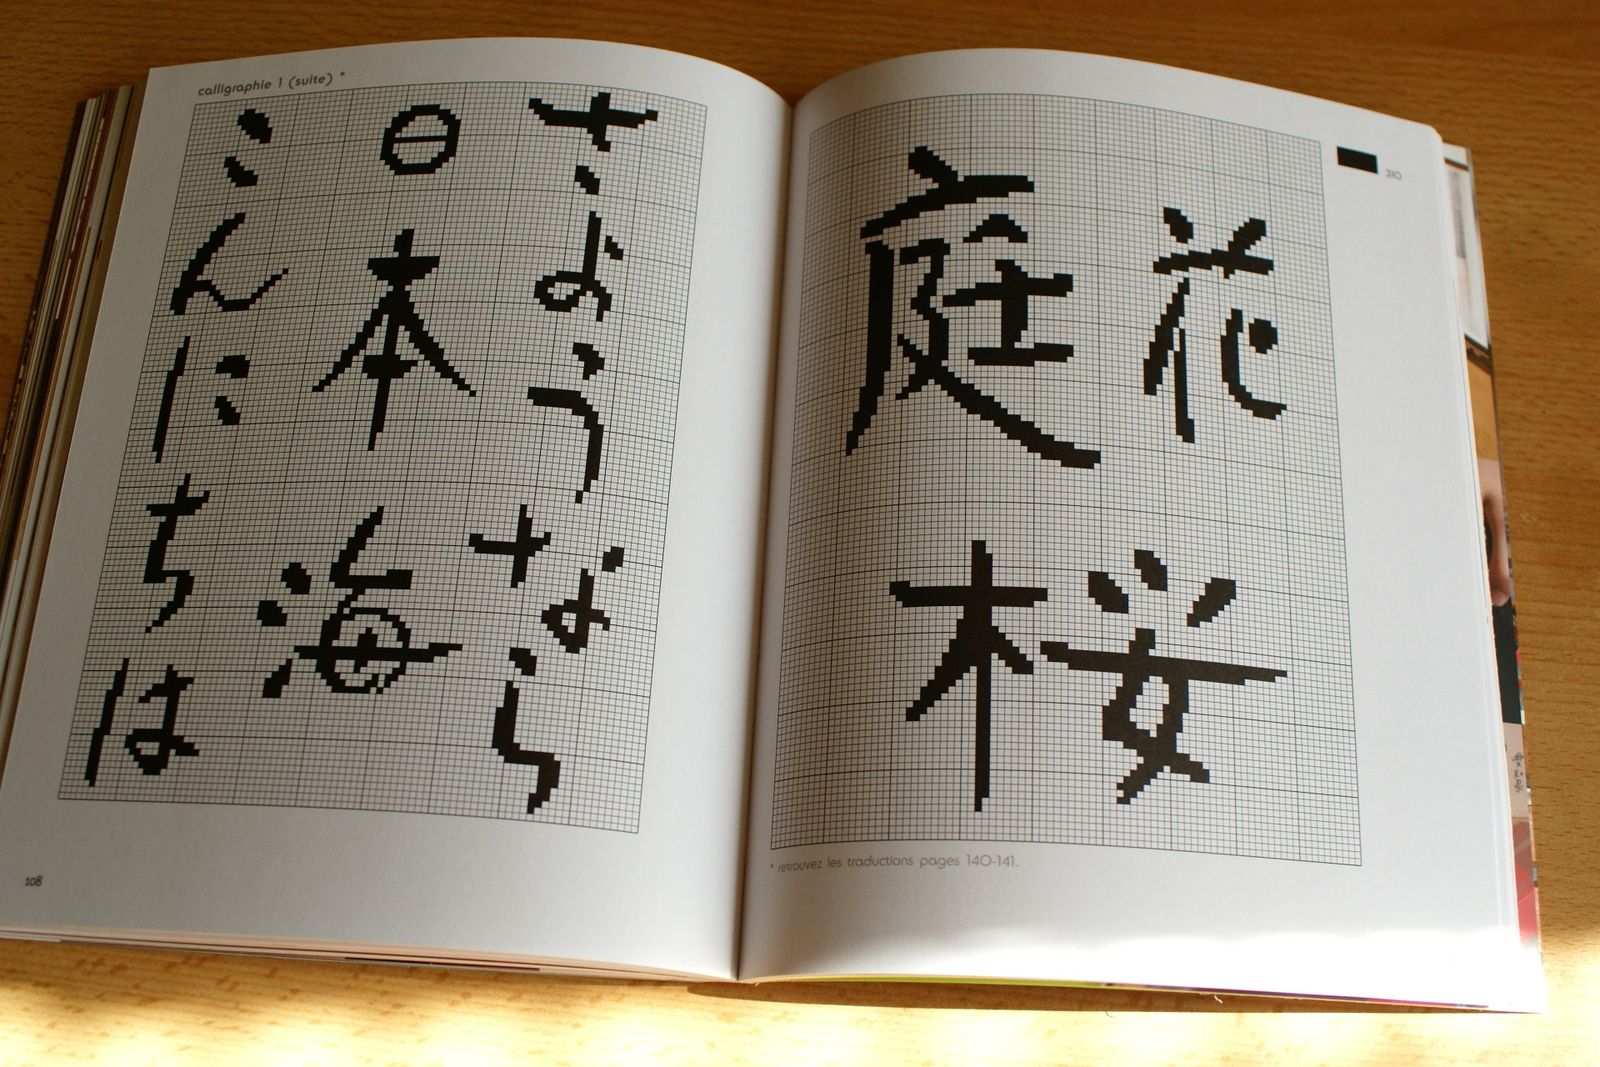 calligraphie 1 (suite) *
こんにちは
日本
海
さようなら
108
庭
花
桜
310
* retrouvez les traductions pages 140-141.